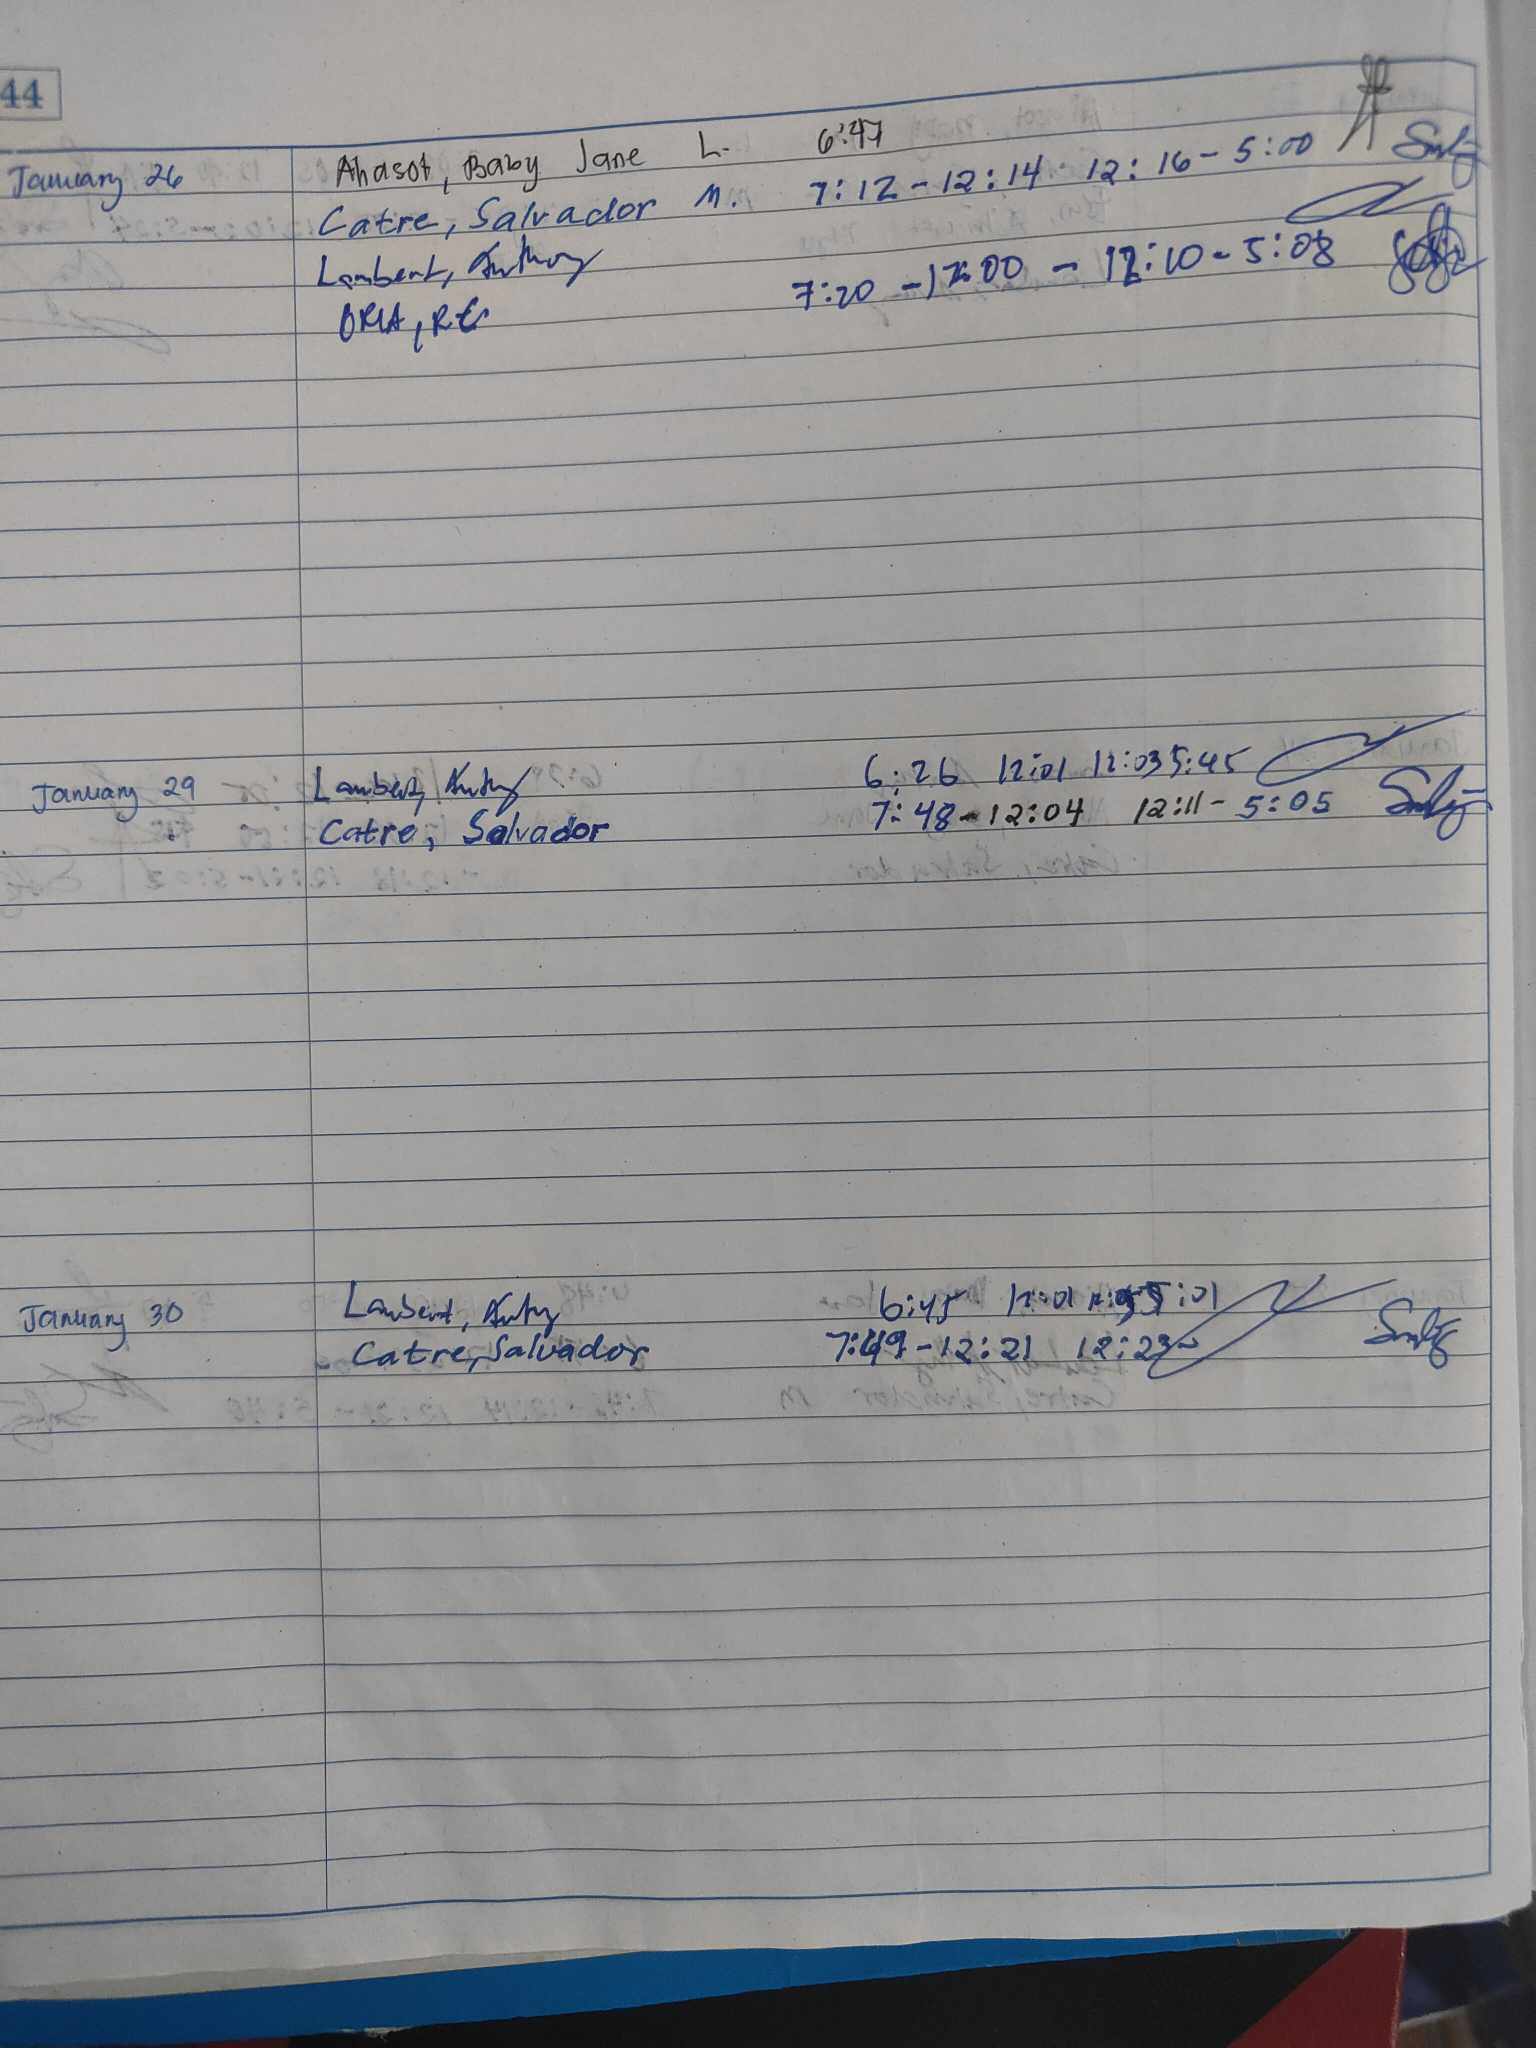 44
January 26 Ahasot, Baby Jane L. 6:47
Catre, Salvador M. 7:12-12:14 12:16-5:00
Lambert, Anthony
ORIA, 7:20 - 12:00 - 12:10 - 5:08
January 29 Lambert, 6:26 12:01 12:03 5:45
Catre, Salvador 7:48-12:04 12:11-5:05
January 30 Lambert, 6:45 12:01 5:01
Catre, Salvador 7:49-12:21 12:23-